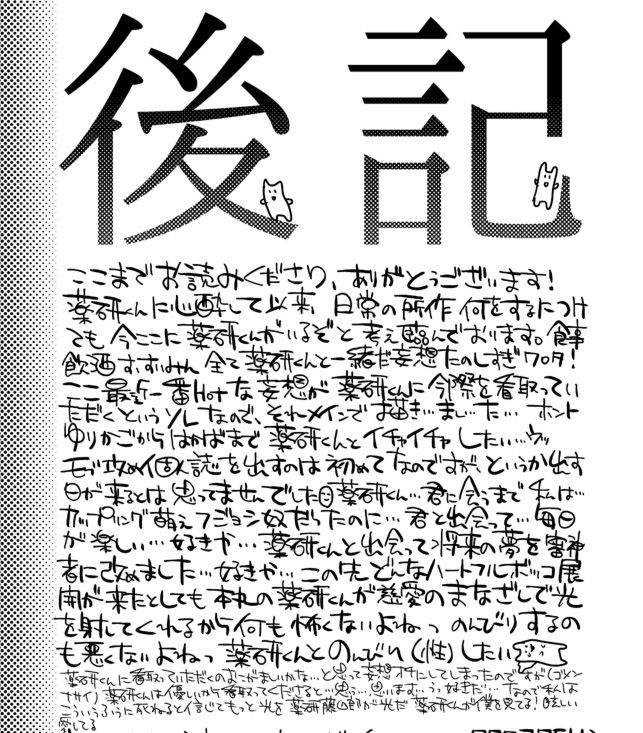 後記
ここまでお読みくださり、ありがとうございます!
薬研くんに心酔して以来、日常の所作何をするにつけ
ても今ここに薬研くんがいるぞと考え臨んでおります。食事
飲酒すいみん全て薬研くんと一緒だ妄想たのしすぎワロタ!
ここ最近一番Hotな妄想が薬研くんに今際を看取ってい
ただくというソレなので、それメインでお描き…まし…た… ホント
ゆりかごからはかばまで薬研くんとイチャイチャしたい…ウッ
モブ攻め個人読を出すのは初めてなのですが、というか出す
日が来るとは思ってませんでした 薬研くん…君に会うまで私は…
カップリング萌えフジョシ奴だったのに…君と出会って…毎日
が楽しい…好きや…薬研くんと出会って将来の夢を審神
者に改めました…好きや…この先どんなハートフルボッコ展
開が来たとしても本丸の薬研くんが慈愛のまなざしで光
を射してくれるから何も怖くないよねっ のんびりするの
も悪くないよねっ 薬研くんとのんびり(性)したい
薬研くんに看取っていただくのおこがましいかな…と思って妄想オチにしてしまったのですが(ゴメン
ナサイ)薬研くんは優しいから看取ってくださると…思う…思います…うっ好きだ…なので私は
こういうふうに死ねると信じてもっと光を 薬研藤四郎が光だ 薬研くんが僕を見てる!眩しい
愛してる